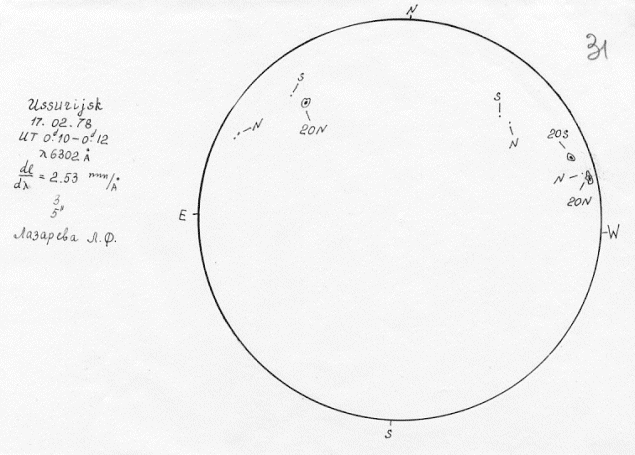 N
31
S
S
Ussurijsk
17. 02. 78
UT 0ᵈ.10–0ᵈ.12
λ6302 Å
dl/dλ = 2.53 mm/Å
3
5"
Лазарева Л.Ф.
N
20N
N
20S
N
20N
E
W
S